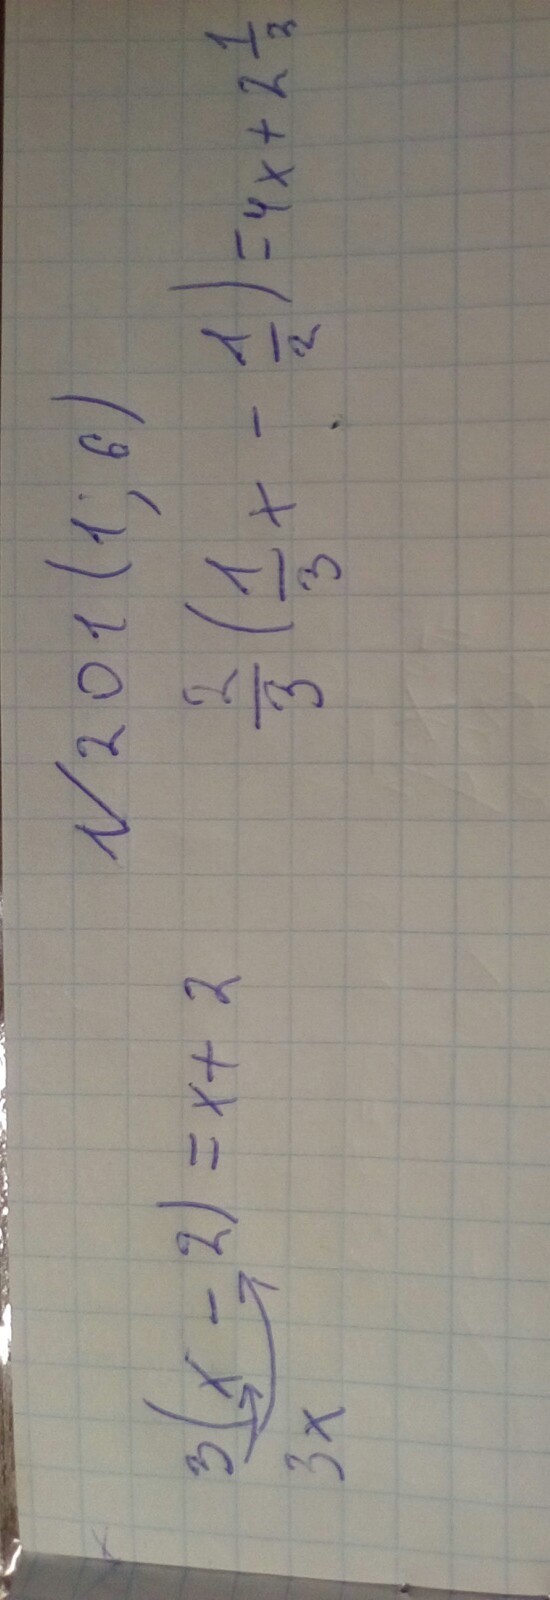 № 201 (1; 6)
3(x - 2) = x + 2
3x
2/3 (1/3 x - 1/2) = 4x + 2 1/3